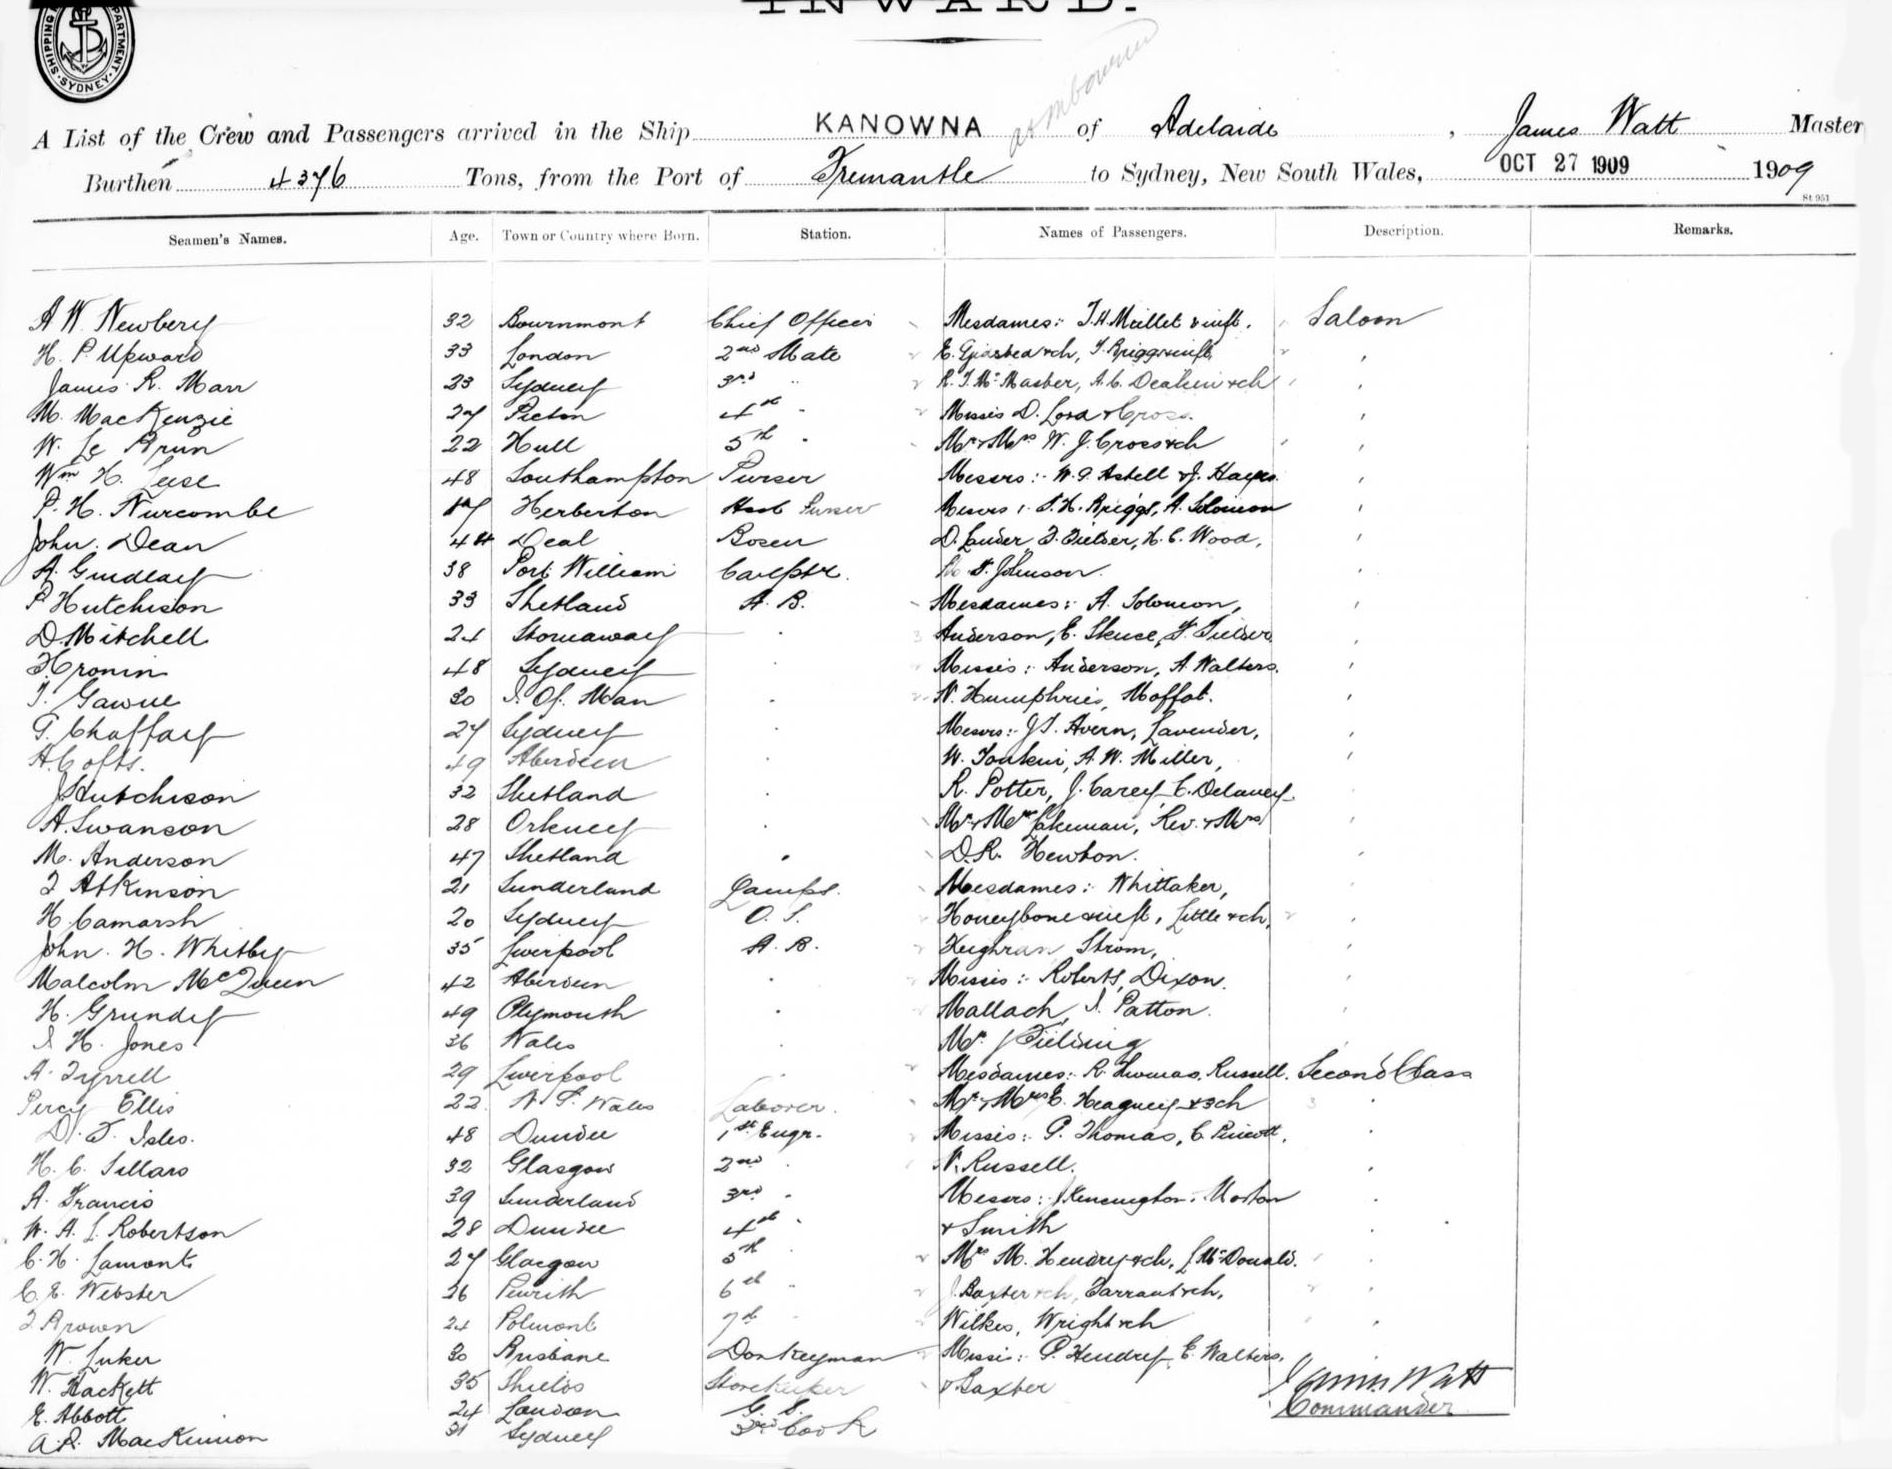 INWARD.
SHIPPING DEPARTMENT SYDNEY
A List of the Crew and Passengers arrived in the Ship KANOWNA of Adelaide, James Watt Master
Burthen 4376 Tons, from the Port of Fremantle to Sydney, New South Wales, OCT 27 1909 1909
St 951
Seamen's Names. Age. Town or Country where Born. Station. Names of Passengers. Description. Remarks.
A W. Newbery 32 Bournmont Chief Officer Mesdames:- T.H. Maillet & inft. Saloon
H. P. Upward 33 London 2nd Mate & inft,
James R. Marr 23 Sydney 3rd " R. J. McMaster, A. C. Deakin & ch
M. MacKenzie 27 Picton 4th " Misses D. Lord & Cross.
W. Le Brun 22 Hull 5th " Mr & Mrs W. J. Cross & ch
Wm H. Leese 48 Southampton Purser Messrs:- W. G. Astell & J. Hayes
P. H. Nurcombe 17 Herberton Asst Purser Messrs: T. H. Briggs, A. Solomon
John. Dean 44 Deal Bosun D. Lauder, F. Fielder, H. C. Wood,
A. Gindlay 38 Port William Carptr. Johnson.
P Hutchison 33 Shetland A. B. Mesdames:- A. Solomon,
D. Mitchell 24 Stornaway " Anderson, E. Skuse, F. Fielder
Cronin 48 Sydney " Misses: Anderson, A. Walters.
T. Gawne 30 I. Of. Man " N. Humphries, Moffat.
T. Chaffary 27 Sydney " Messrs:- J S. Avern, Lavender,
A. Cofts. 49 Aberdeen " W. Tonkin, A. W. Miller,
J Hutchison 32 Shetland " R. Potter, J. Carey, C. Delaney
A. Swanson 28 Orkney " Mr & Mrs Lakeman, Rev. & Mrs
M. Anderson 47 Shetland " D. R. Hewton.
J Atkinson 21 Sunderland Lamps. Mesdames:- Whittaker,
H. Camarsh 20 Sydney O. S. Honeybone & inft, Little & ch,
John. H. Whitby 35 Liverpool A. B. Heghran, Strom,
Malcolm McQueen 42 Aberdeen " Misses:- Roberts, Dixon.
H. Grundy 49 Plymouth " Mallach, I. Patton.
I H. Jones 36 Wales " Mr. J Fielding
A. Tyrrell 29 Liverpool " Mesdames:- R. Thomas, Russell. Second Class
Percy Ellis 22 N. S. Wales Laborer. Mr & Mrs E. Heagney & 3 ch
D. F. Isles. 48 Dundee 1st Engr. Misses:- P. Thomas,
H. C. Sillars 32 Glasgow 2nd " N. Russell.
A. Francis 39 Sunderland 3rd " Messrs: J Kensington. Morton
W. A. L. Robertson 28 Dundee 4th " & Smith
C. H. Lamont 27 Glasgow 5th " Mrs M. Hendry & ch, L McDonald.
C. E. Webster 26 Penrith 6th " J. Baxter & ch, Tarrant & ch,
J. Brown 24 Polmont 7th " Wilkes, Wright & ch
W. Luker 30 Brisbane Donkeyman Misses:- P. Hendry, E. Walters,
W. Hackett 35 Shields Storekeeper & Baxter James Watt
E. Abbott 24 London G. S. Commander
A. R. MacKinnon 31 Sydney 3rd Cook